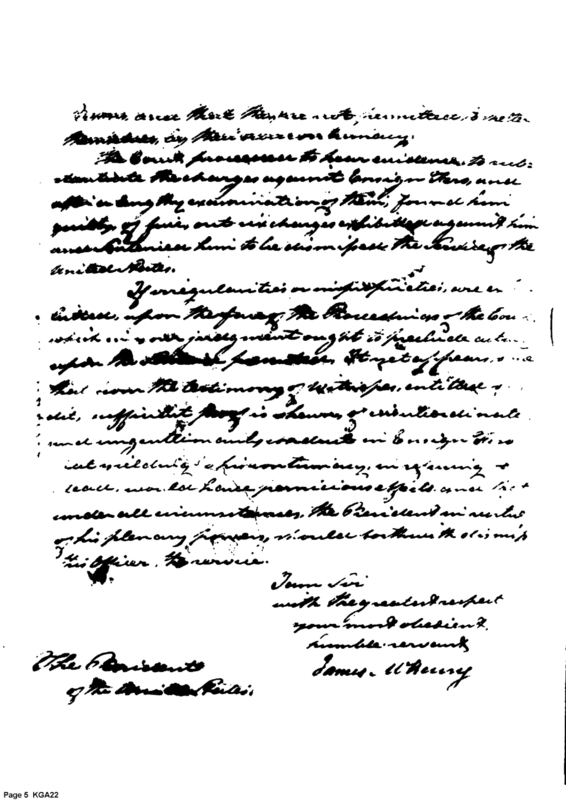 and that they are not permitted, to
themselves, by their own contumacy.
The Court proceeded to hear evidence, to sub-
stantiate the charges against Ensign and
after a lengthy examination of them, found him
guilty of five, out six charges exhibited against him
and Sentenced him to be dismissed the Service of the
United States.
If irregularities or improprieties, are
upon the face of the Proceedings of the
which in your judgment ought to preclude
upon the It yet appears,
that from the testimony of Witnesses, entitled
sufficient proof is shewn, of
and ungentlemanly conduct in Ensign
contumacy, in refusing
would have pernicious effects. and
under all circumstances, the President in
of his plenary powers, should forthwith dismiss
this Officer, the service.
I am Sir
with the greatest respect
your most obedient.
humble servant
James McHenry
The President
of the United States.
Page 5 KGA22